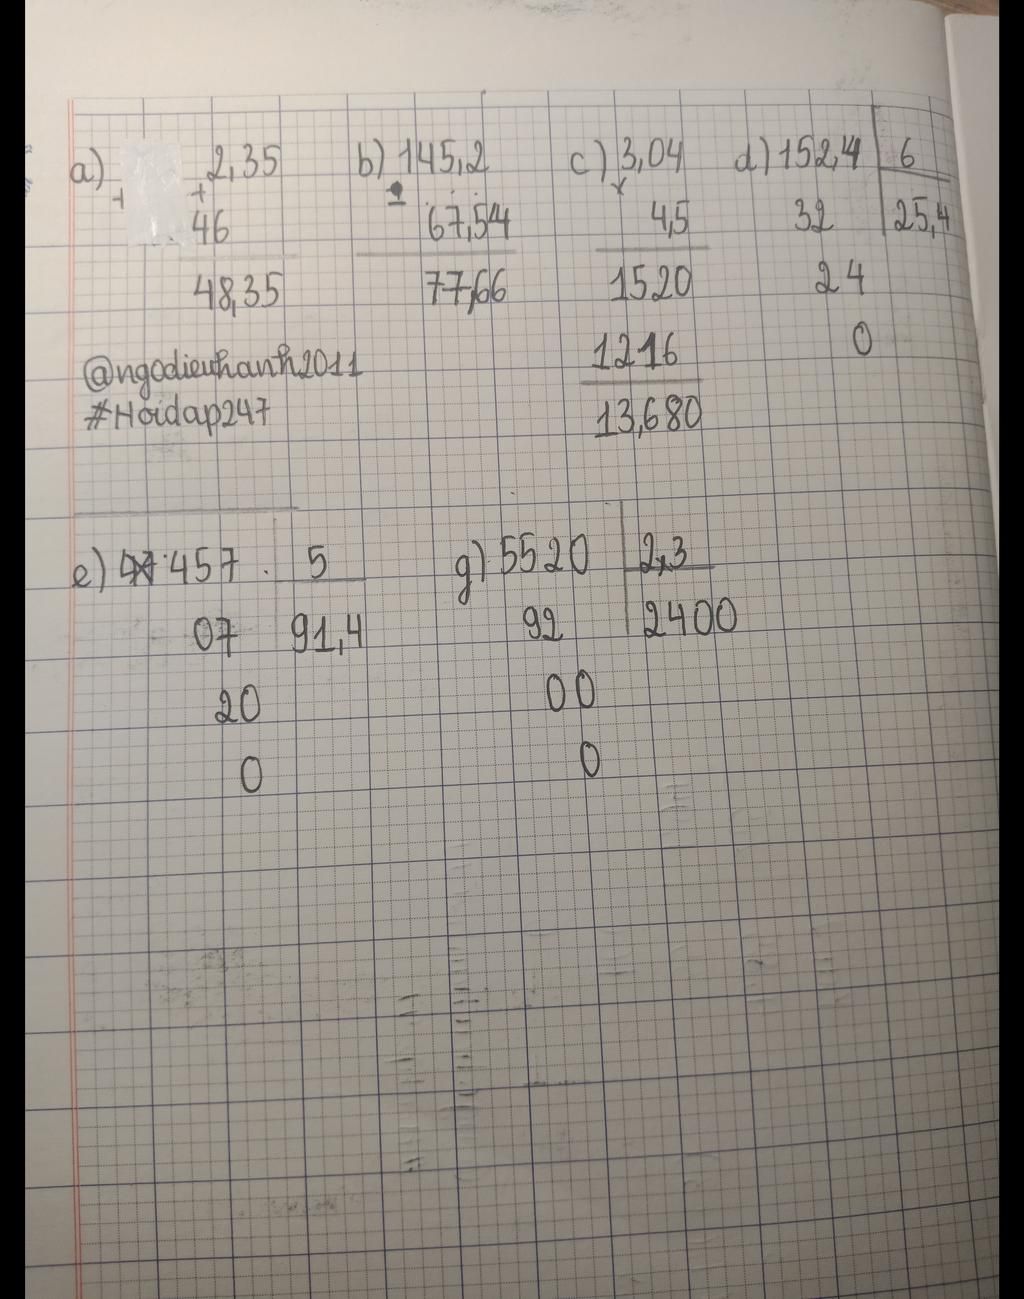 a) 2,35 b) 145,2 c) 3,04 d) 152,4 6
+ + - x
46 67,54 4,5 32 25,4
48,35 77,66 1520 24
1216 0
@ngodieuhanh2011
#Hoidap247 13,680
e) 457 5 g) 5520 2,3
07 91,4 92 2400
20 00
0 0